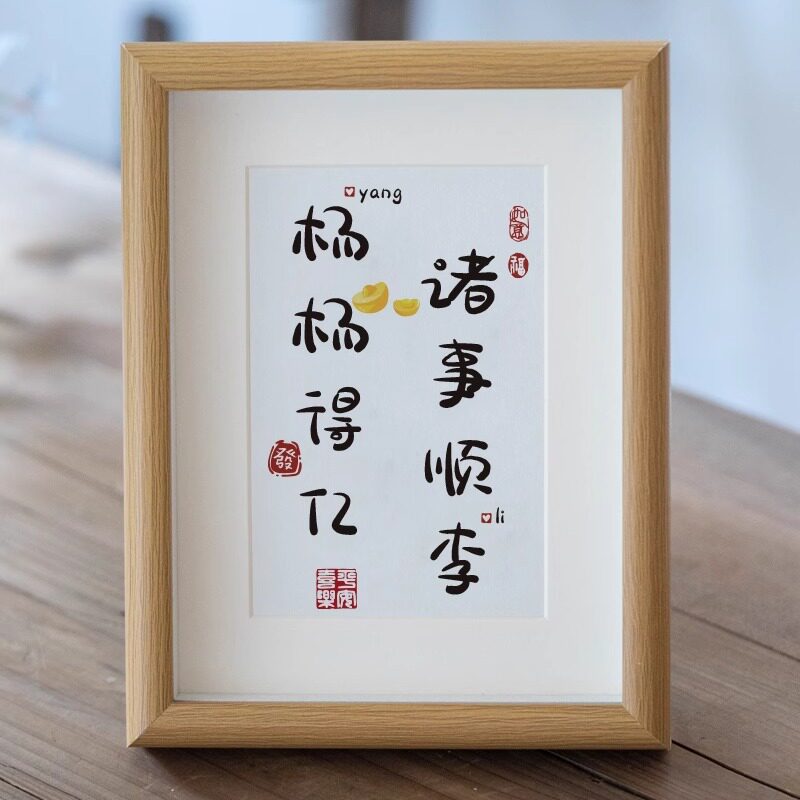 如意
福
诸事顺李
li
yang
杨杨得亿
發
平安喜樂